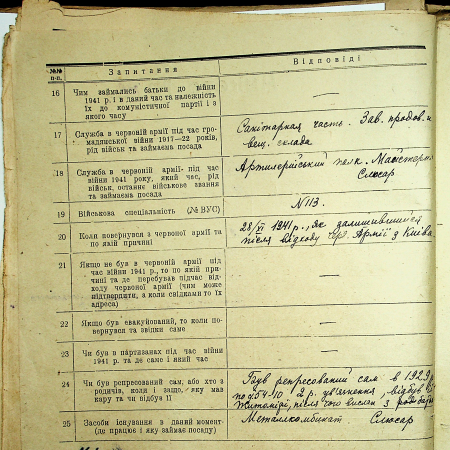 №№ п-п.
Запитання
Відповіді
16
Чим займались батьки до війни
1941 р. і в даний час та належність
їх до комуністичної партії і з
якого часу
—
17
Служба в червоній армії під час гро-
мадянської війни 1917—22 років,
рід військ та займаєма посада
Санітарная часть. Зав. продов. и
вещ. склада
18
Служба в червоній армії під час
війни 1941 року, який час, рід
військ, останнє військове звання
та займаєма посада
Артилерійський полк. Майстерня
Слюсар
19
Військова спеціальність (№ ВУС)
№ 113.
20
Коли повернувся з червоної армії та
по якій причині
28/VI 1941 р., як залишившийся
після відходу чер. Армії з Київа
21
Якщо не був в червоній армії під
час війни 1941 р., то по якій при-
чині та де перебував підчас від-
ходу червоної армії (чим може
підтвердити, а коли свідками то їх
адреса)
—
22
Якщо був евакуйований, то коли по-
вернувся та звідки саме
—
23
Чи був в партизанах під час війни
1941 р. та де саме і який час
—
24
Чи був репресований сам, або хто з
родичів, коли і за що, яку мав
кару та чи відбув її
Був репресований сам в 1929 р
по 54-10 2 р. ув'язнення, відбув
Житомірі, після чого вислан з
25
Засоби існування в даний момент
(де працює і яку займає посаду)
Металлкомбинат Слюсар